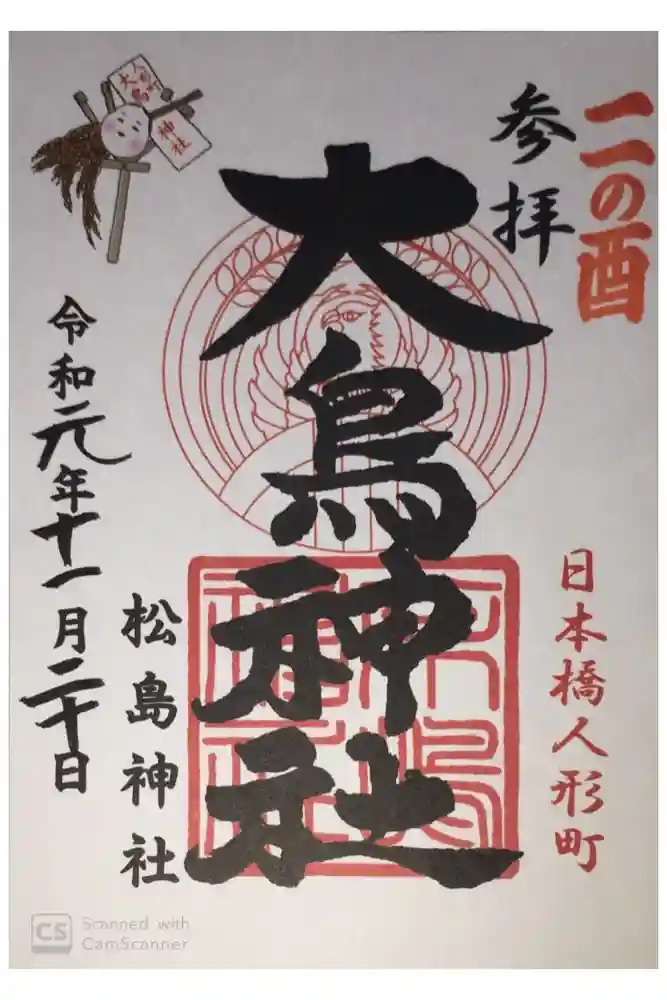 二の酉
参拝
日本橋人形町
大鳥神社
松島神社
令和元年十一月二十日
人形町
大鳥
神社
CS
Scanned with
CamScanner